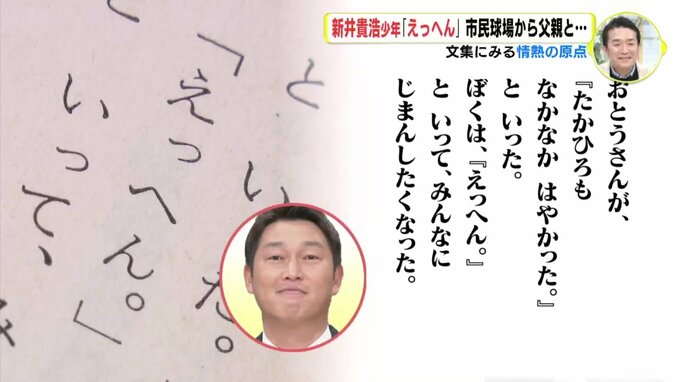 新井貴浩少年「えっへん」 市民球場から父親と…
文集にみる情熱の原点
おとうさんが、
『たかひろも
なかなか はやかった。』
と いった。
ぼくは、『えっへん。』
と いって、みんなに
じまんしたくなった。
と い た。
「えっへん。」
いって、